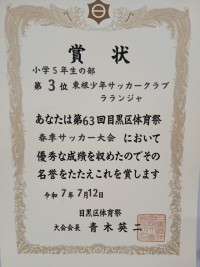 賞状
小学5年生の部
第3位 東根少年サッカークラブ
ラランジャ
あなたは第63回目黒区体育祭
春季サッカー大会において
優秀な成績を収めたのでその
名誉をたたえこれを賞します
令和7年7月12日
目黒区体育祭
大会会長 青木英二